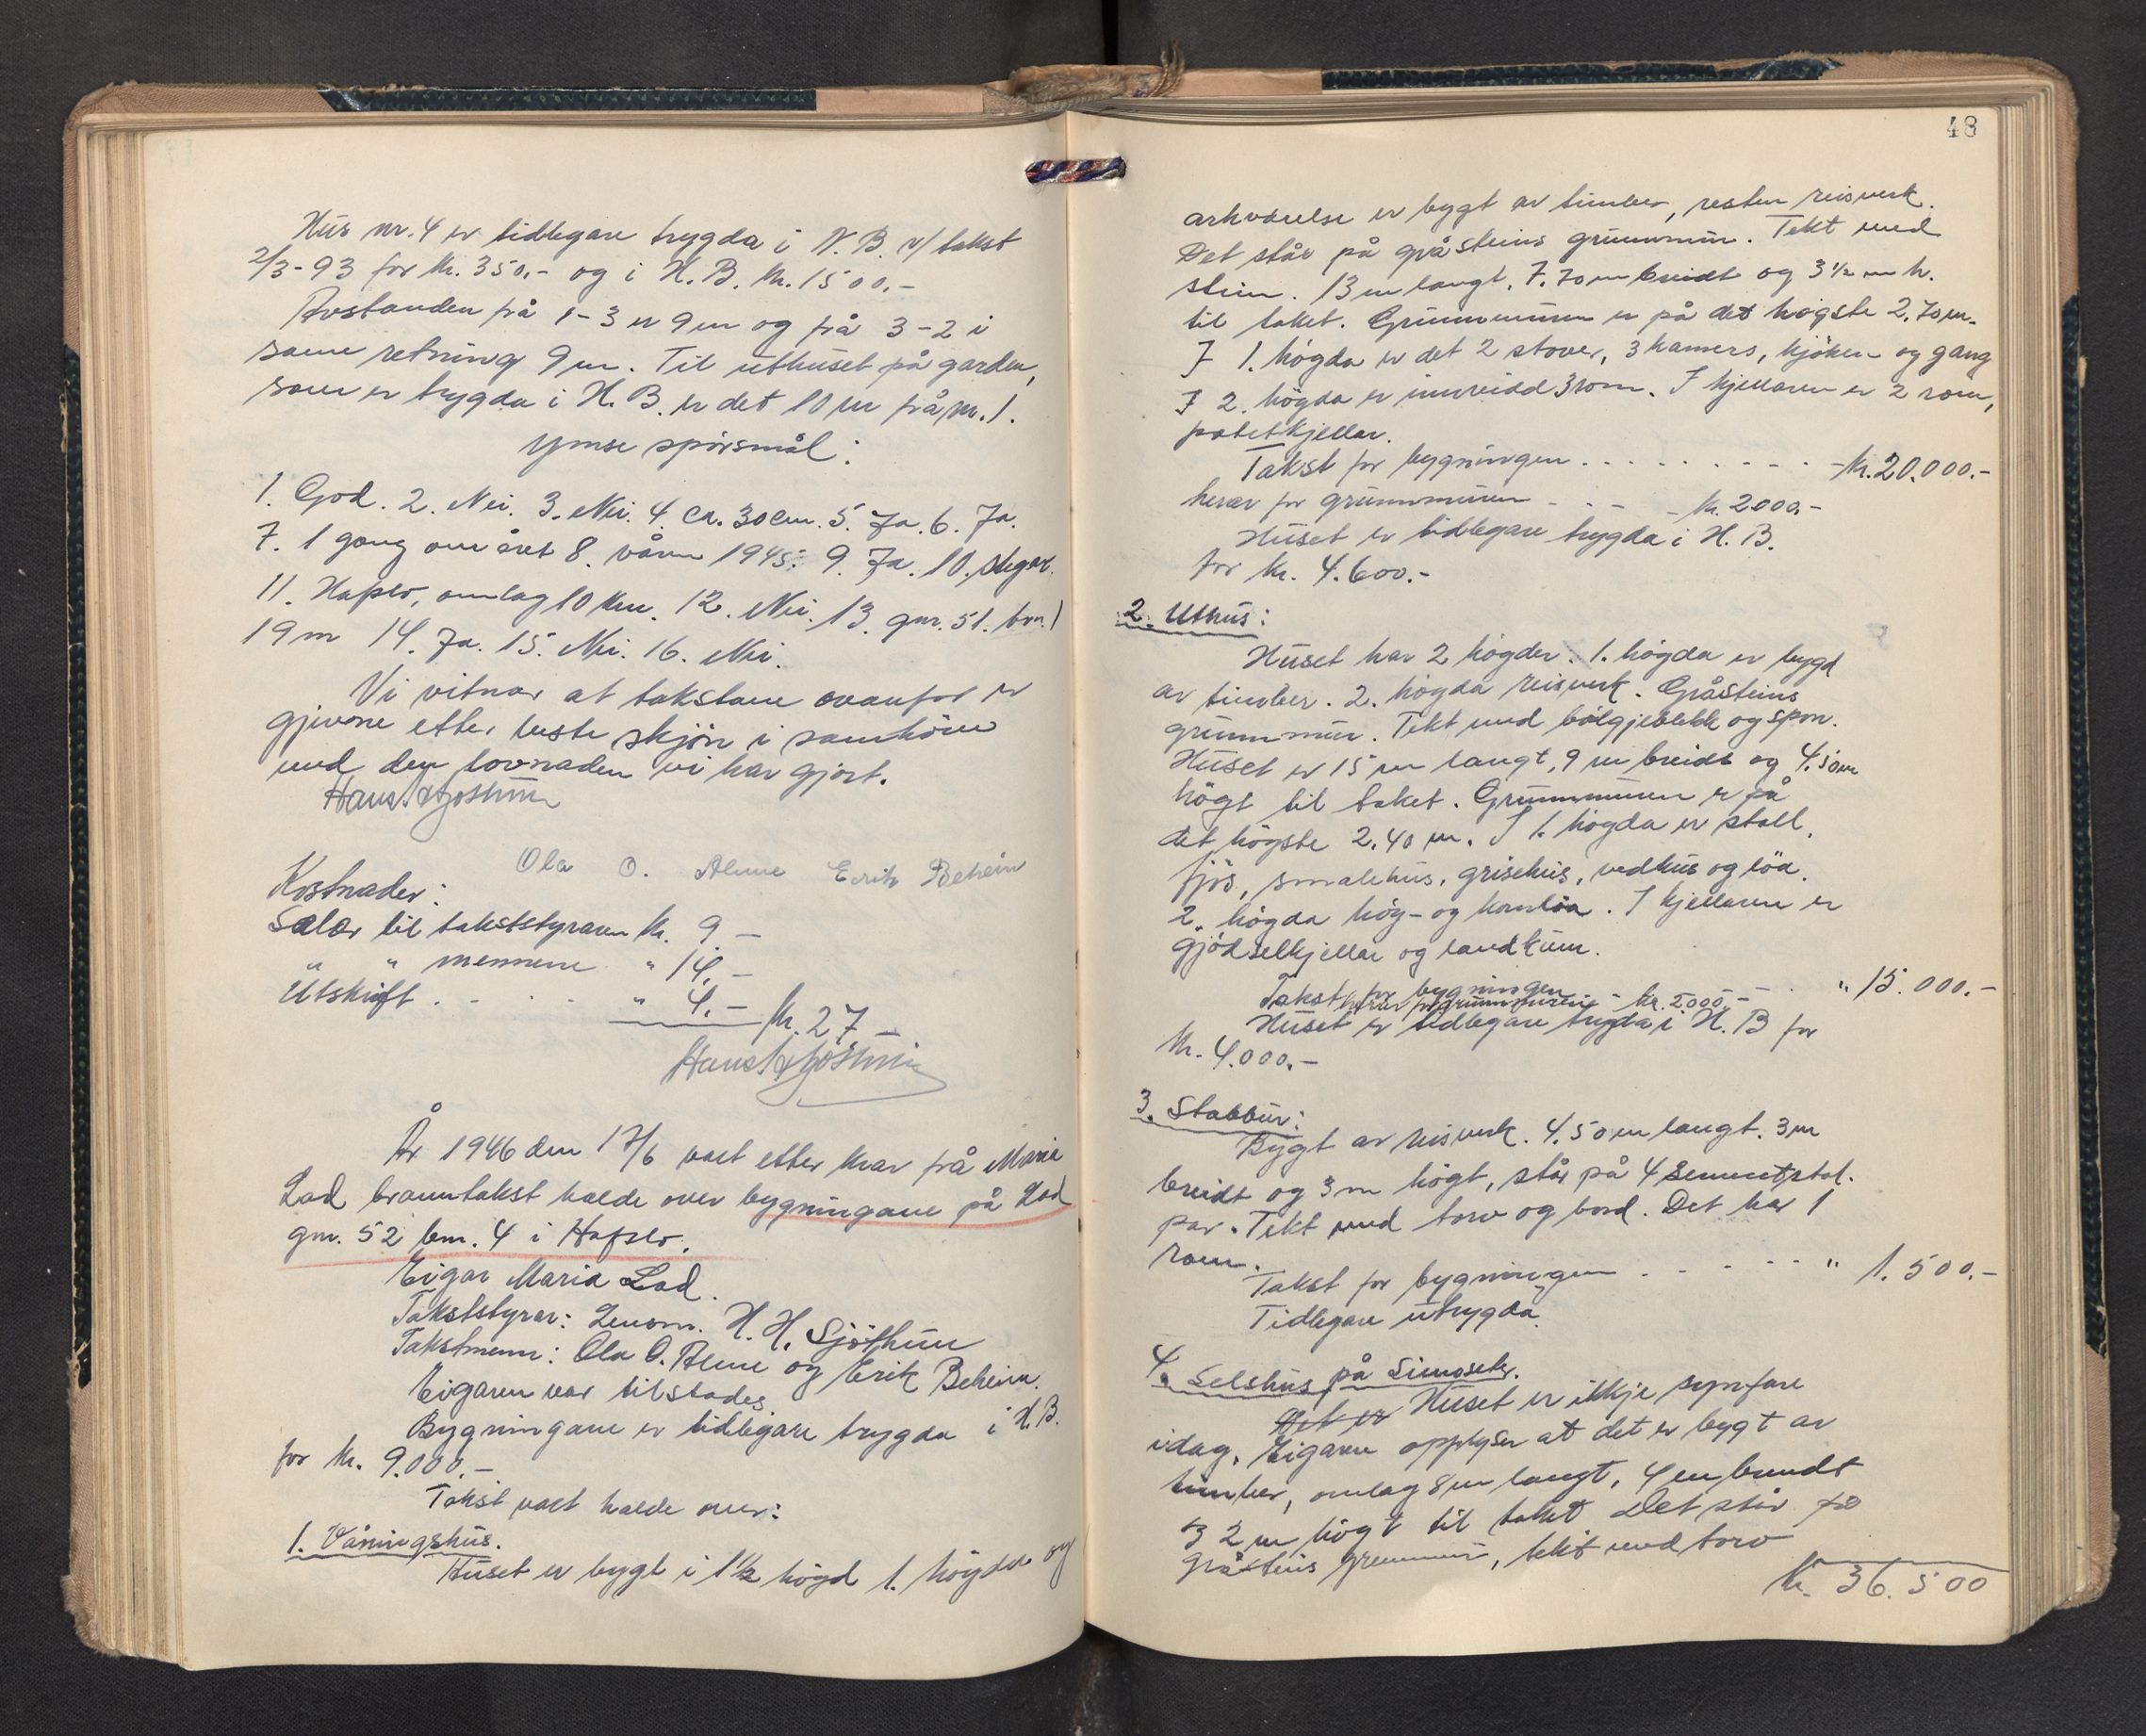 Hus nr. 4 er tidlegare trygda i N. B. v/ takst
2/3-93 for kr. 350.- og i H. B. kr. 1500.-
Avstanden frå 1-3 er 9 m og frå 3-2 i
same retning 9 m. Til uthuset på garden,
som er trygda i H. B. er det 10 m frå nr. 1.
Ymse spörsmål:
1. God. 2. Nei. 3. Nei. 4. ca. 30 cm. 5. Ja. 6. Ja.
7. 1 gong om året 8. våren 1945. 9. Ja. 10.
11. Hafslo, omlag 10 km. 12. Nei. 13. gnr. 51. bnr. 1
19 m 14. Ja. 15. Nei. 16. Nei.
Vi vitnar at takstane ovanfor er
gjevne etter beste skjön i samhöve
med den lovnaden vi har gjort.
Hans H Sjøthun
Ola O. Alme Erik Beheim
Kostnader:
Salær til takststyraren kr. 9.-
" " mennene " 14.-
Utskrift . . . . " 4.- kr. 27.-
Hans H Sjøthun
År 1946 den 17/6 vart etter krav frå Maria
Lad branntakst halde over bygningane på Lad
gnr. 52 bnr. 4 i Hafslo.
Eigar Maria Lad.
Takststyrar: Lensm. H. H. Sjöthun
Takstmenn: Ola O. Alme og Erik Beheim.
Eigaren var tilstades
Bygningane er tidlegare trygda i H. B.
for kr. 9.000.-
Takst vart halde over:
1. Våningshus.
Huset er bygt i 1½ högd 1. högda og
48
arkværelse er bygt av timber, resten reisverk.
Det står på gråsteins grunnmur. Tekt med
stein. 13 m langt, 7.70 m breidt og 3½ m h.
til taket. Grunnmuren er på det högste 2.70 m.
I 1. högda er det 2 stover, 3 kamers, kjöken og gang
I 2. högda er innreidd 3 rom. I kjellaren er 2 rom,
potetkjellar.
Takst for bygningen . . . . . . . . . kr. 20.000.-
herav for grunnmuren - - - kr. 2000.-
Huset er tidlegare trygda i H. B.
for kr. 4.600.-
2. Uthus:
Huset har 2 högder. 1. högda er bygd
av timber. 2. högda reisverk. Gråsteins
grunnmur. Tekt med bölgjeblekk og spon.
Huset er 15 m langt, 9 m breidt og 4.50 m
högt til taket. Grunnmuren er på
det högste 2.40 m. I 1. högda er stall,
fjös, smalehus, grisehus, vedhus og löa.
2. högda höy- og kornlöa. I kjellaren er
gjödselkjellar og landkum.
Takst for bygningen - - - . " 15.000.-
herav for grunnmuren - kr. 2000.-
Huset er tidlegare trygda i H. B for
kr. 4.000.-
3. Stabbur:
Bygt av reisverk. 4.50 m langt. 3 m
breidt og 3 m högt, står på 4 sementstol-
par. Tekt med torv og bord. Det har 1
rom.
Takst for bygningen . . - - - " 1.500.-
Tidlegare utrygda.
4. Selshus på
Det er Huset er ikkje synfare
idag. Eigaren opplyser at det er bygt av
timber, omlag 8 m langt, 4 m breidt
og 2 m högt til taket Det står på
gråsteins grunnmur, tekt med torv
kr. 36.500